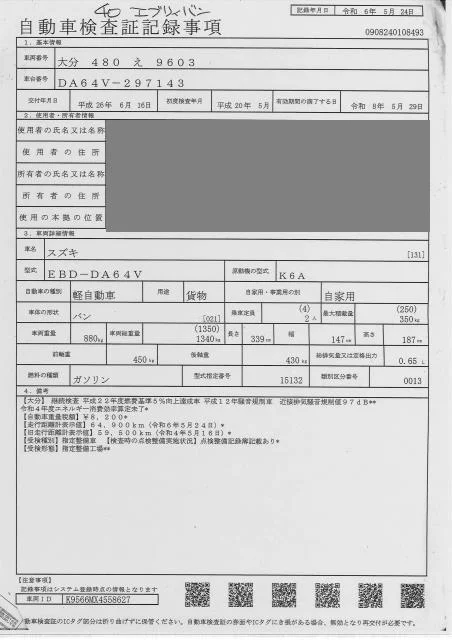 40 エブリィバン
記録年月日 令和 6年 5月 24日
自動車検査証記録事項
0908240108493
1．基本情報
車両番号 大分 480 え 9603
車台番号 DA64V−297143
交付年月日 平成 26年 6月 16日 初度検査年月 平成 20年 5月 有効期間の満了する日 令和 8年 5月 29日
2．使用者・所有者情報
使用者の氏名又は名称
使用者の住所
所有者の氏名又は名称
所有者の住所
使用の本拠の位置
3．車両詳細情報
車名 スズキ [131]
型式 EBD−DA64V 原動機の型式 K6A
自動車の種別 軽自動車 用途 貨物 自家用・事業用の別 自家用
車体の形状 バン [021] 乗車定員 (4) 2人 最大積載量 (250) 350kg
車両重量 880kg 車両総重量 (1350) 1340kg 長さ 339cm 幅 147cm 高さ 187cm
前軸重 450kg 後軸重 430kg 総排気量又は定格出力 0.65 L
燃料の種類 ガソリン 型式指定番号 15132 類別区分番号 0013
4．備考
【大分】 継続検査 平成22年度燃費基準5％向上達成車 平成12年騒音規制車 近接排気騒音規制値97dB**
令和4年度エネルギー消費効率算定未了*
【自動車重量税額】￥8，200*
【走行距離計表示値】64，900km（令和6年5月24日）*
【旧走行距離計表示値】59，500km（令和4年5月16日）*
【受検種別】指定整備車 【検査時の点検整備実施状況】点検整備記録簿記載あり*
【受検形態】指定整備工場**
【注意事項】
記録事項はシステム登録時点の情報となります
車両ID K9566MX4558627
自動車検査証のICタグ部分は折り曲げずに保管ください。自動車検査証の券面やICタグにき損がある場合、無効となり再交付が必要です。